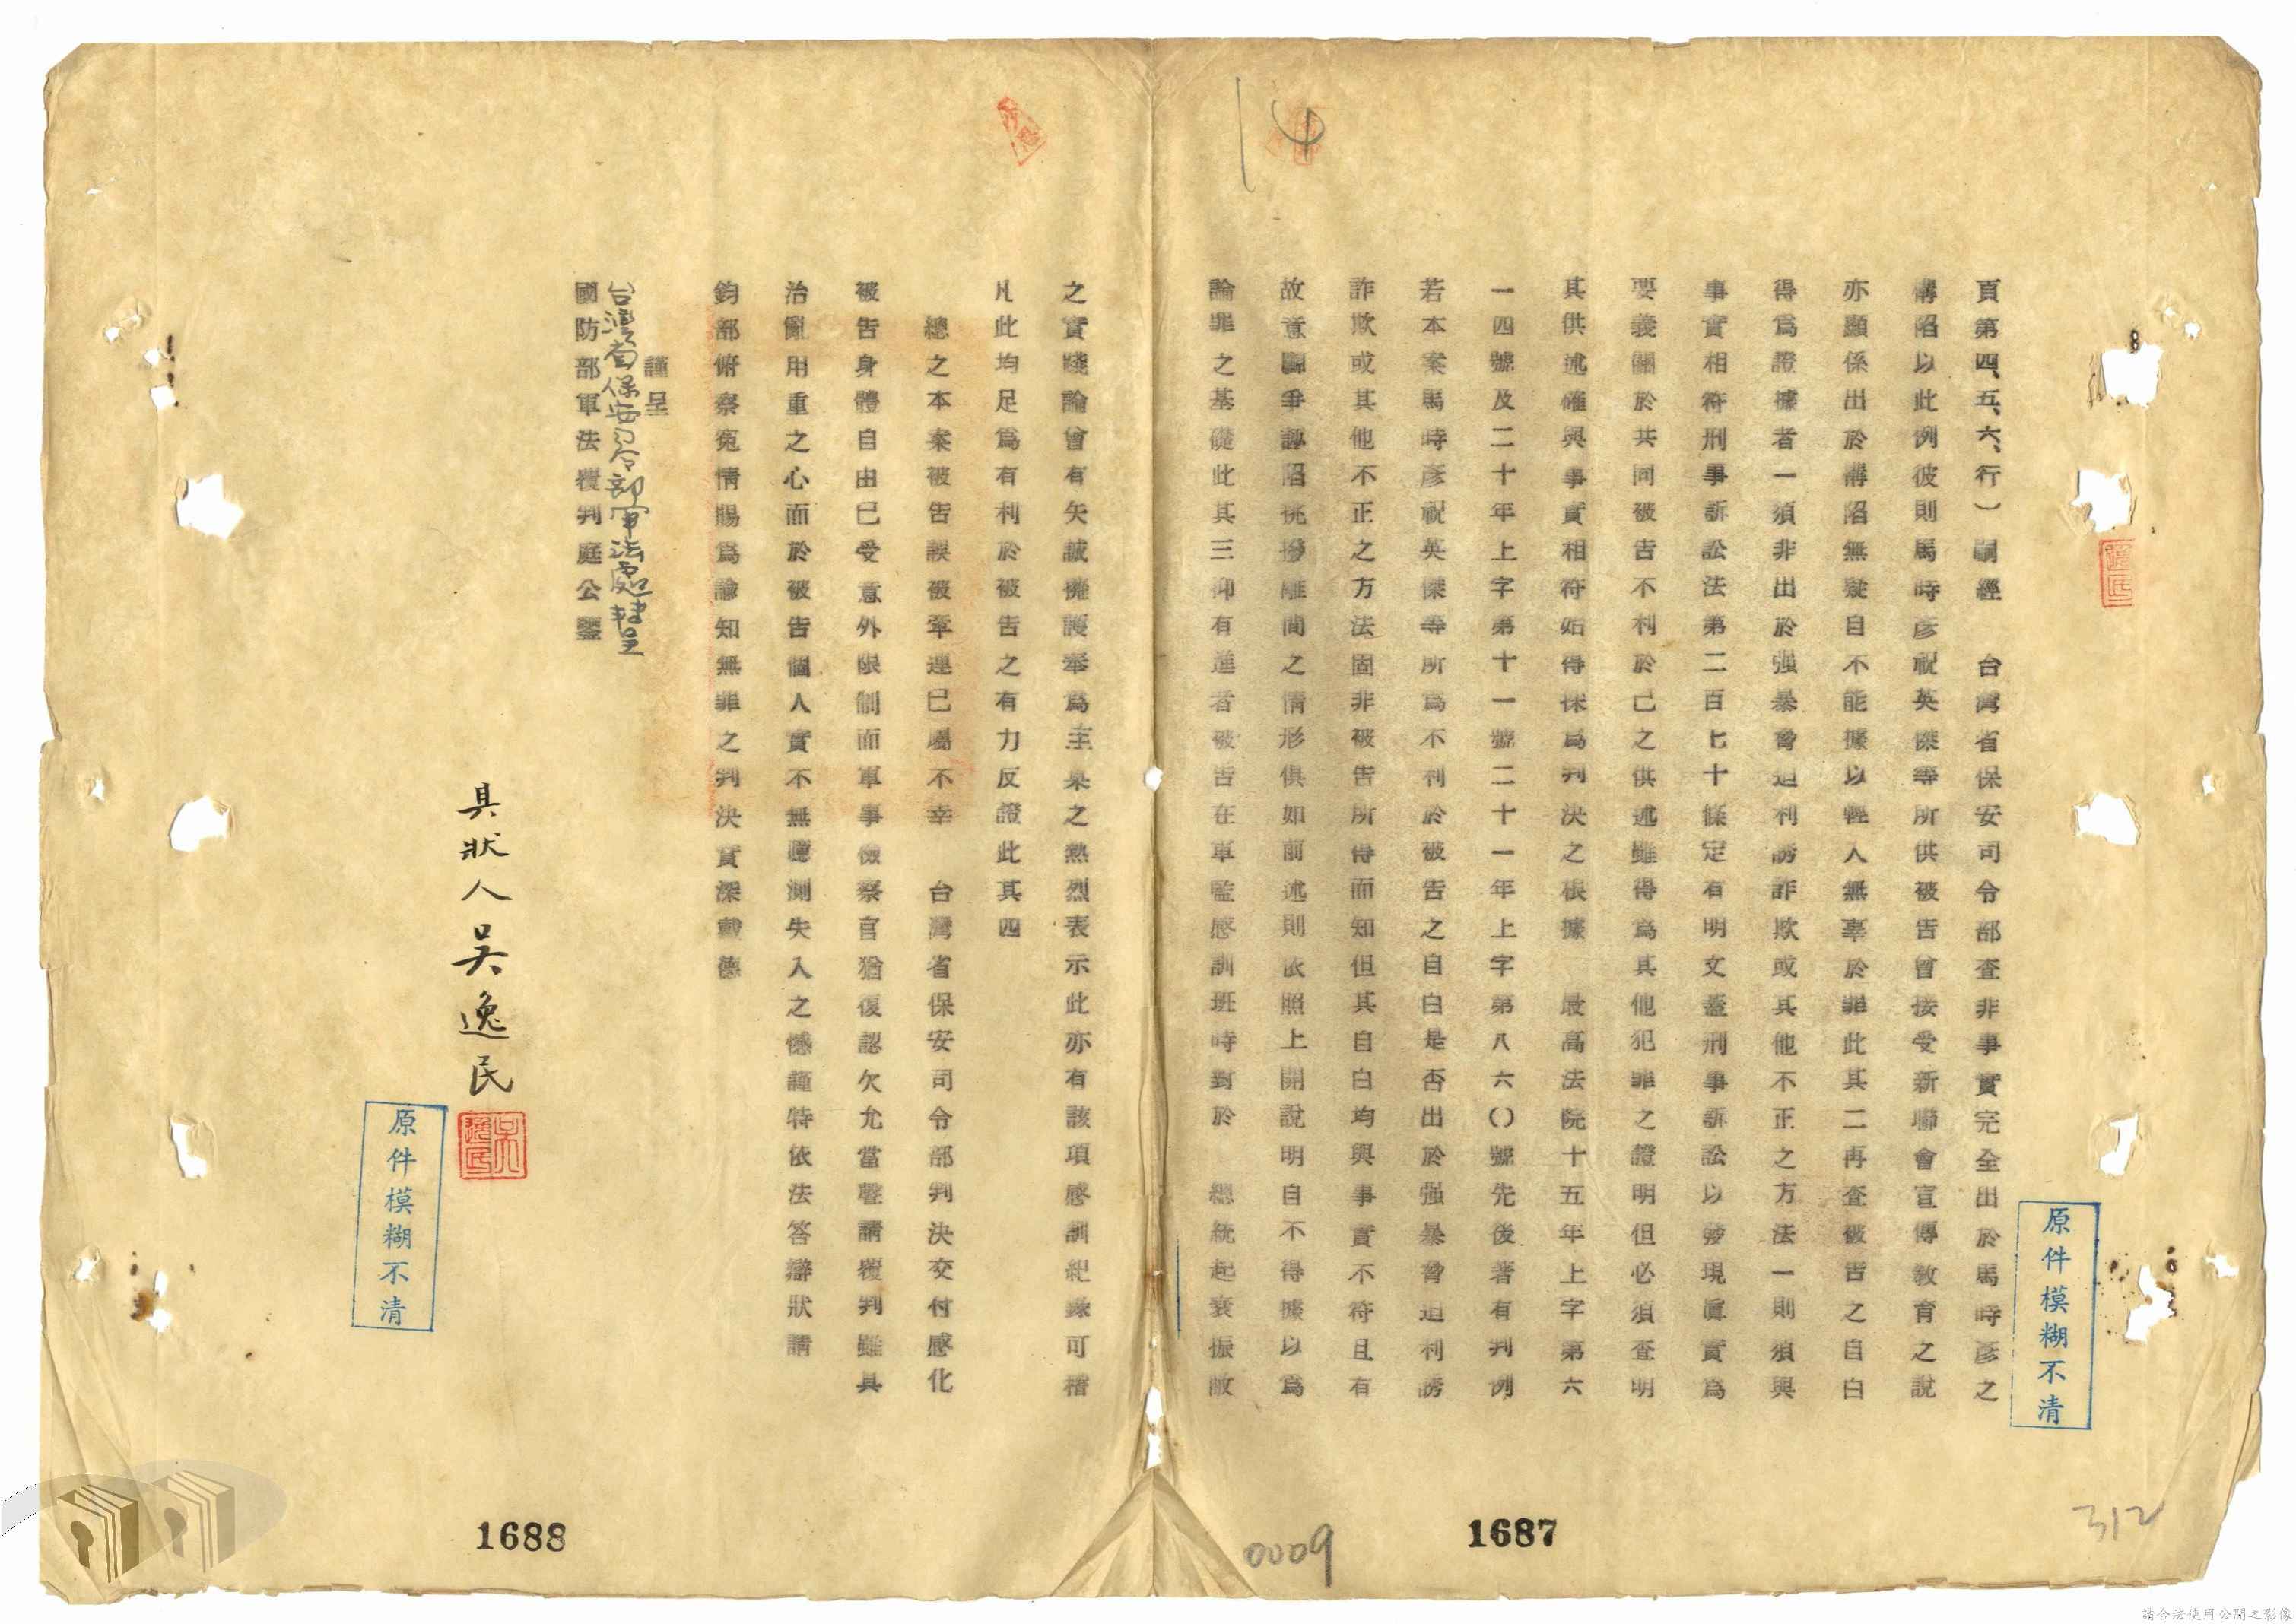 頁第四、五、六、行）嗣經　台灣省保安司令部查非事實完全出於馬時彥之
構陷以此例彼則馬時彥祝英傑等所供被告曾接受新聯會宣傳教育之說
亦顯係出於構陷無疑自不能據以輕入無辜於罪此其二再查被告之自白
得爲證據者一須非出於强暴脅迫利誘詐欺或其他不正之方法一則須與
事實相符刑事訴訟法第二百七十條定有明文蓋刑事訴訟以發現眞實爲
要義關於共同被告不利於己之供述雖得爲其他犯罪之證明但必須查明
其供述確與事實相符始得採爲判決之根據　最高法院十五年上字第六
一四號及二十年上字第十一號二十一年上字第八六〇號先後著有判例
若本案馬時彥祝英傑等所爲不利於被告之自白是否出於强暴脅迫利誘
詐欺或其他不正之方法固非被告所得而知但其自白均與事實不符且有
故意圖爭誣陷挑撥離間之情形俱如前述則依照上開說明自不得據以爲
論罪之基礎此其三抑有進者被告在軍監感訓班時對於　總統起衰振敝
之實踐論曾有矢誠擁護奉爲圭臬之熱烈表示此亦有該項感訓紀錄可稽
凡此均足爲有利於被告之有力反證此其四
總之本案被告誤被牽連已屬不幸　台灣省保安司令部判決交付感化
被告身體自由已受意外限制而軍事檢察官猶復認欠允當聲請覆判雖具
治亂用重之心而於被告個人實不無臆測失入之憾謹特依法答辯狀請
鈞部俯察寃情賜爲諭知無罪之判決實深戴德
謹呈
台灣省保安司令部軍法處轉呈
國防部軍法覆判庭公鑒
具狀人吳逸民
吳逸民
原件模糊不清
原件模糊不清
逸民
14
8
1688
1687
0009
312
請合法使用公開之影像